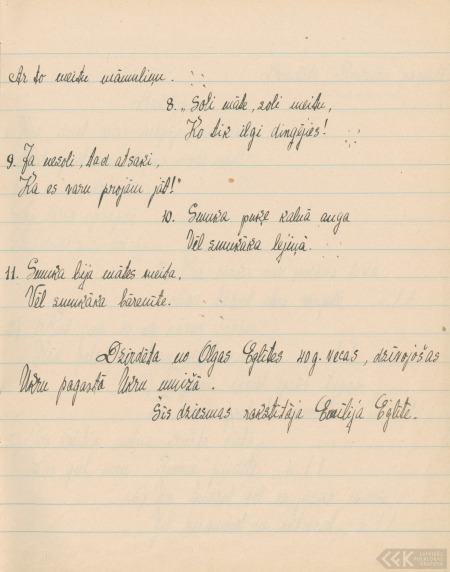 Ar to meitu māmuliņu.
8. „Soli māte, soli meitu,
Ko tik ilgi dingējies!
9. Ja nesoli, tad atsaki,
Ka es varu projām jāt!"
10. Smuka puķe kalnā auga
Vēl smukāka lejiņā.
11. Smuka bija mātes meita,
Vēl smukāka bārenīte.
Dzirdēta no Olgas Eglītes 40 g. vecas, dzīvojošas
Ukru pagastā Ukru muižā.
Šīs dziesmas rakstītāja Emīlija Eglīte.
LATVIEŠU
FOLKLORAS
KRĀTUVE